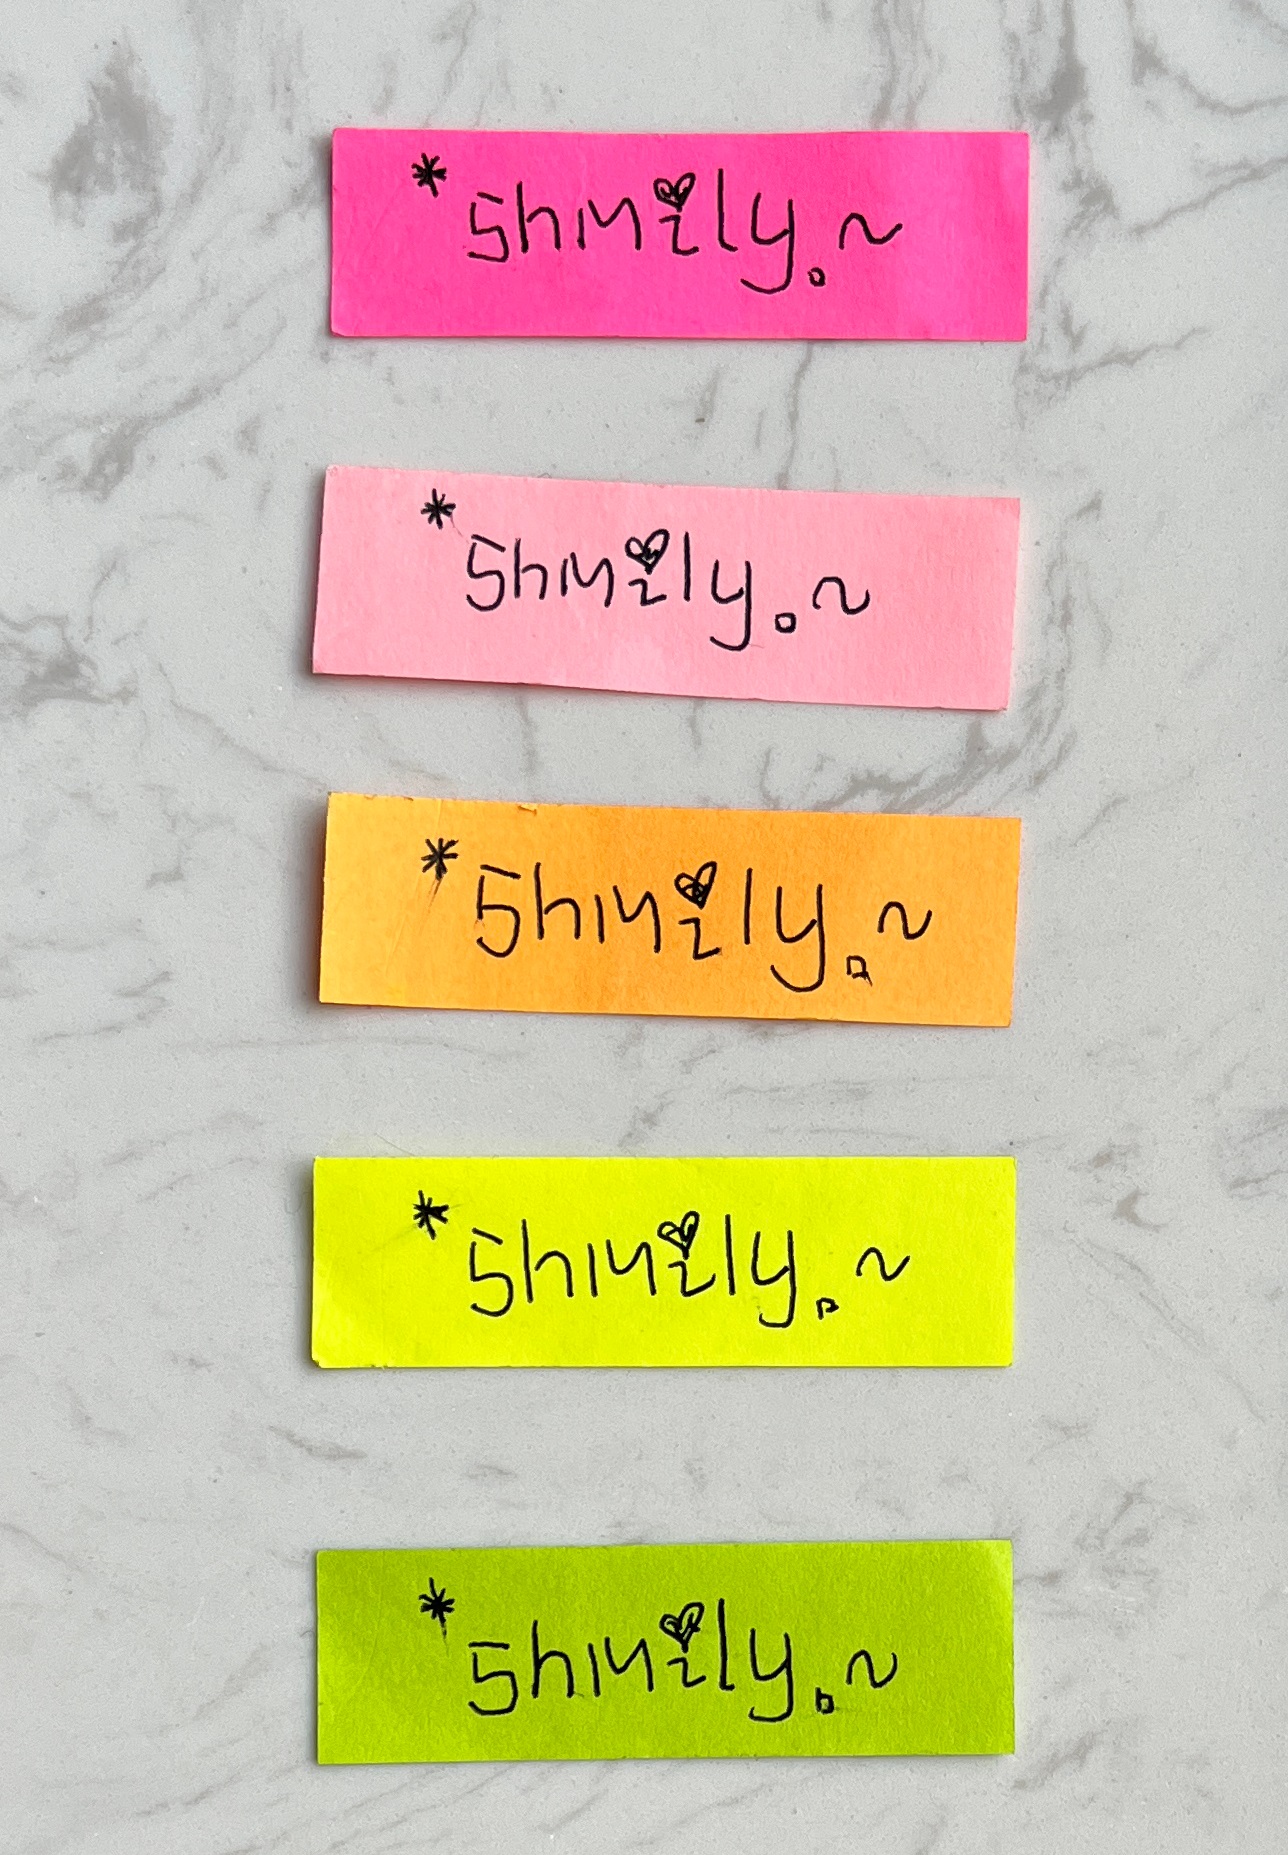 *shmily.~
*shmily.~
*shmily.~
*shmily.~
*shmily.~